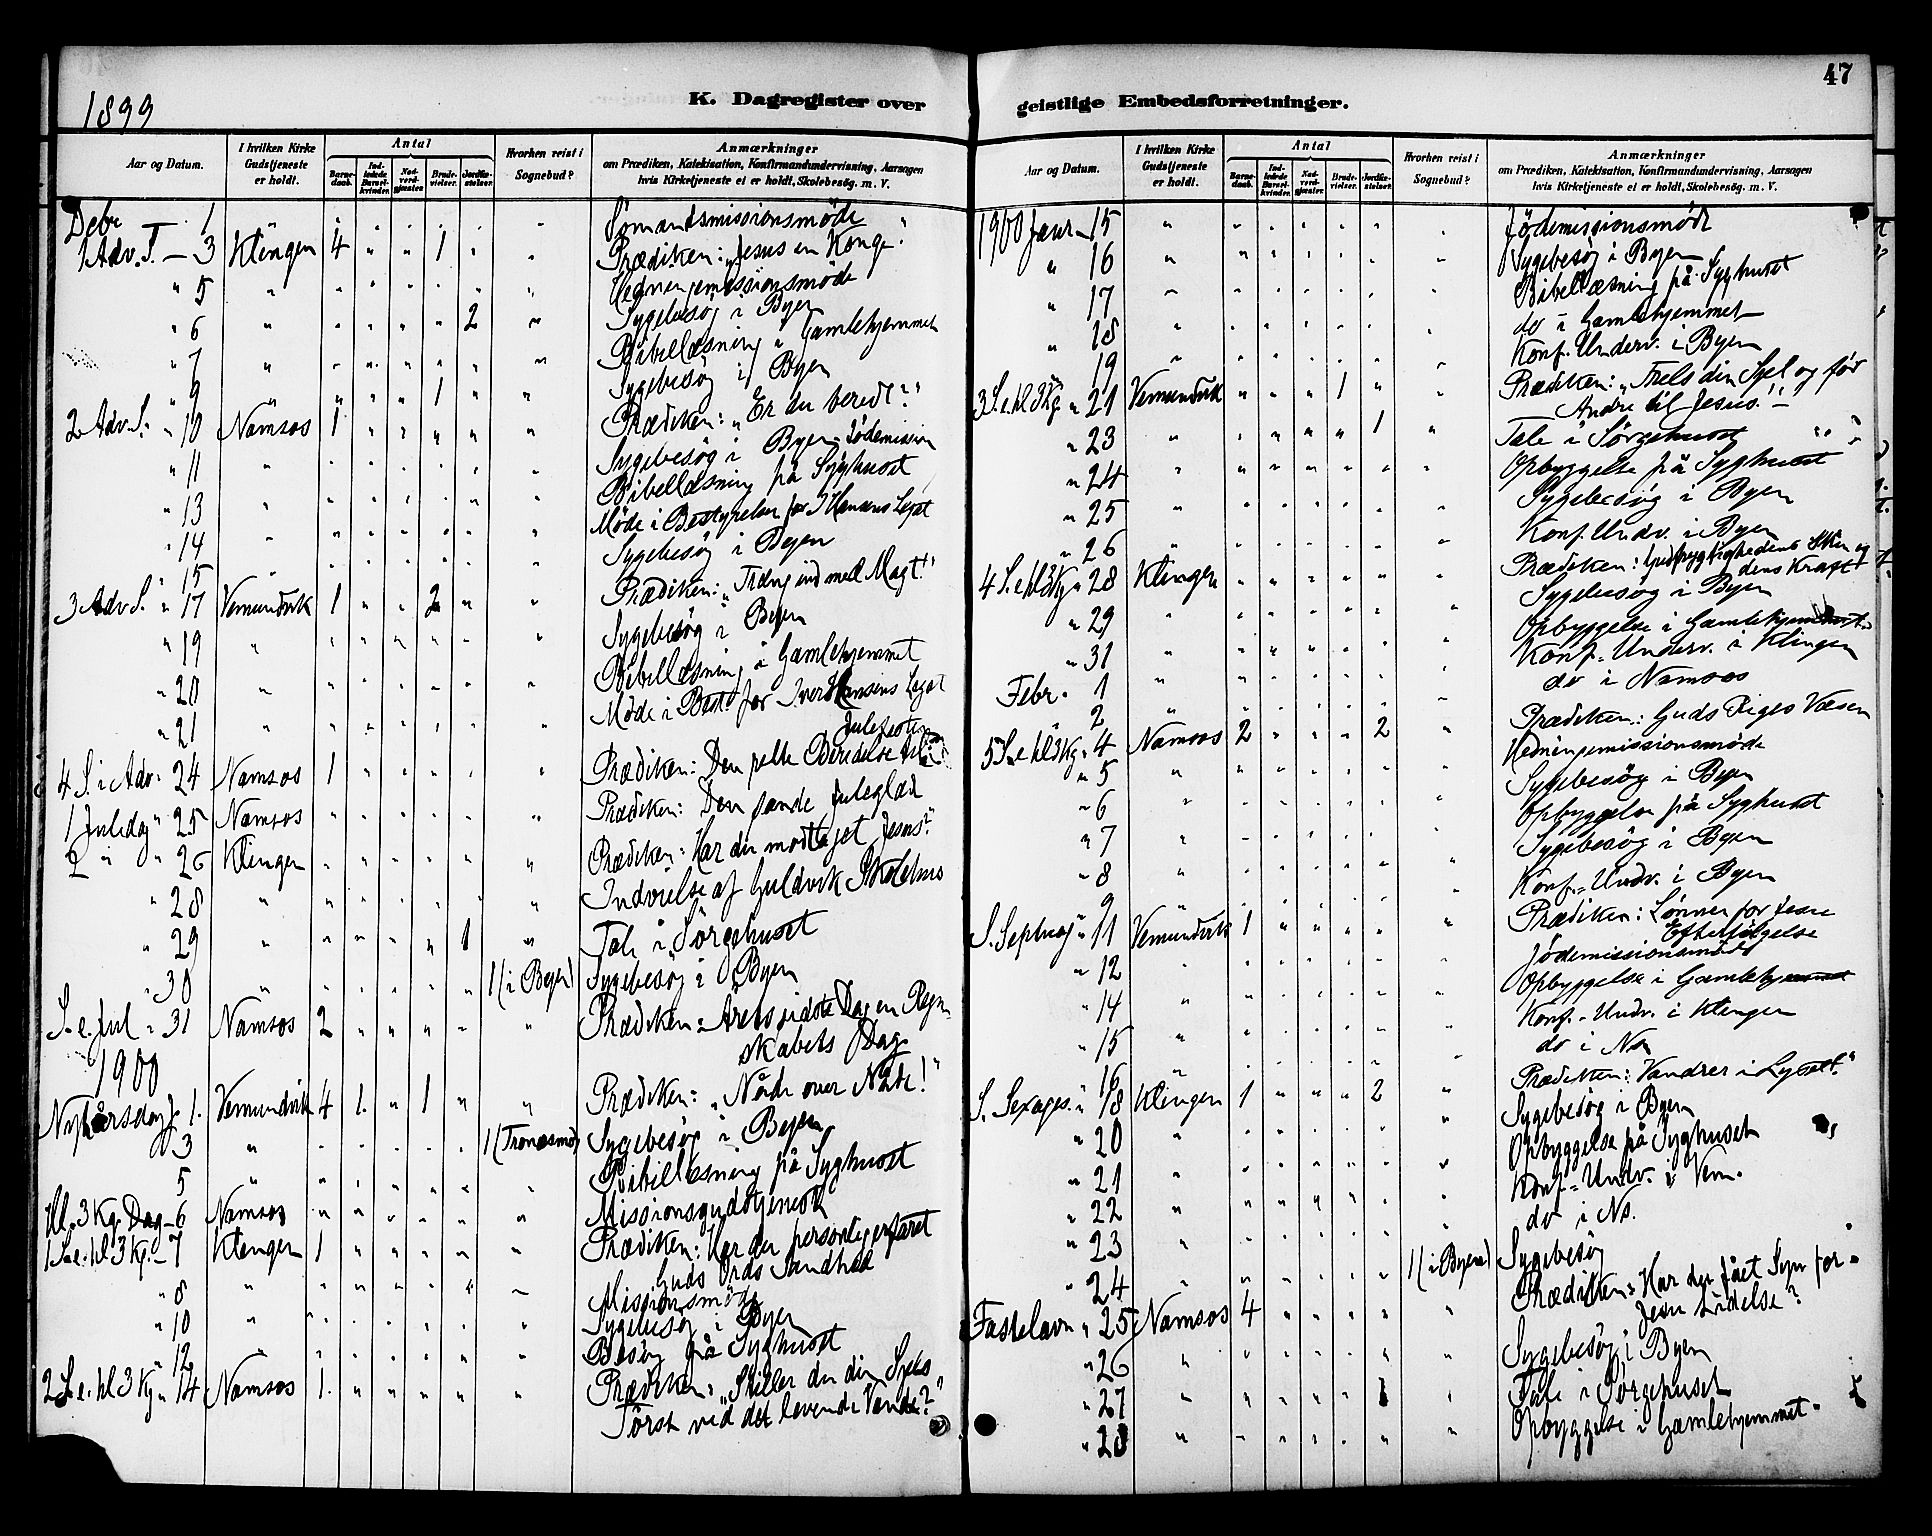 1899
K. Dagregister over
Aar og Datum.
I hvilken Kirke Gudstjeneste er holdt.
Antal
Barnedaab.
Indledede Barselkvinder.
Nadverdgjæster.
Brudevielser.
Jordfæstelser.
Hvorhen reist i Sognebud?
Anmærkninger
om Prædiken, Katekisation, Konfirmandundervisning, Aarsagen
hvis Kirketjeneste ei er holdt, Skolebesøg. m. V.
Debr 1 " " " " " " " Sømandsmissionsmøde
1 Adv. S. — 3 Klingen 4 " " 1 " " Prædiken: "Jesus en Konge".
" 5 " " " " " " " Hedningemissionsmøde
" 6 " " " " " 2 " Sygebesøg i Byen
" 7 " " " " " " " Bibellæsning i Gamlehjemmet
" 9 " " " " 1 " " Sygebesøg i Byen
2 Adv. S. " 10 Namsos 1 " " " " " Prædiken: "Er du beredt?"
" 11 " " " " " " " Sygebesøg i Byen Jødemission
" 13 " " " " " " " Bibellæsning på Syghuset
" 14 " " " " " " " Møde i Bestyrelsen for I Hansens Legat
" 15 " " " " " " " Sygebesøg i Byen
3 Adv S. " 17 Vemundvik 1 " " 2 " " Prædiken: "Træng ind med Magt!"
" 19 " " " " " " " Sygebesøg i Byen
" 20 " " " " " " " Bibellæsning i Gamlehjemmet
" 21 " " " " " " " Møde i Best. for Iver Hansens Legat
4 S. i Adv. 24 Namsos 1 " " " " " Prædiken: Den rette Beredelse til Julefesten
1 Juledag " 25 Namsos " " " " " " Prædiken: Den sande Juleglæde
2 " " 26 Klingen " " " " " " Prædiken: Har du modtaget Jesus?"
" 28 " " " " " " " Indvielse af Guldvik Skolehus
" 29 " " " " " 1 " Tale i Sørgehuset
" 30 " " " " " " 1 (i Byen) Sygebesøg i Byen
S. e. Jul " 31 Namsos 2 " " " " " Prædiken: Årets sidste Dag en Regn-
skabets Dag
1900
Nyårsdag J. 1. Vemundvik 4 1. " 1 " " Prædiken: "Nåde over Nåde!"
3 " " " " " " 1 (Tronæsmo) Sygebesøg i Byen
5 " " " " " " " Bibellæsning på Syghuset
Hl. 3 Kg. Dag – 6 Namsos " " " " " " Missionsgudstjeneste
1 S. e. hl 3 Kg. – 7 Klingen 1 " " " " " Prædiken: Har du personlig erfaret
Guds Ords Sandhed
" 8 " " " " " " " Missionsmøde
" 10 " " " " " " " Sygebesøg i Byen
" 12 " " " " " " " Besøg på Syghuset
2 S. e. hl 3 Kg " 14 Namsos 1. " " " " " Prædiken: "Stiller du din Sjels
Tørst ved det levende Vand?"
47
geistlige Embedsforretninger.
Aar og Datum.
I hvilken Kirke Gudstjeneste er holdt.
Antal
Barnedaab.
Indledede Barselkvinder.
Nadverdgjæster.
Brudevielser.
Jordfæstelser.
Hvorhen reist i Sognebud?
Anmærkninger
om Prædiken, Katekisation, Konfirmandundervisning, Aarsagen
hvis Kirketjeneste ei er holdt, Skolebesøg. m. V.
1900 Janr – 15 " " " " " " " Jødemissionsmøde
" 16 " " " " " " " Sygebesøg i Byen
" 17 " " " " " " " Bibellæsning på Syghuset
" 18 " " " " " " " do i Gamlehjemmet
" 19 " " " " " " " Konf. Underv. i Byen
3 S. e. hl 3 Kg. " 21 Vemundvik " " " 1 " " Prædiken: "Frels din Sjel og før
Andre til Jesus!"
" 23 " " " " " 1 " Tale i Sørgehuset
" 24 " " " " " " " Opbyggelse på Syghuset
" 25 " " " " " " " Sygebesøg i Byen
" 26 " " " " " " " Konf. Undv. i Byen
4 S. e hl 3 Kg " 28 Klingen " " " " " " Prædiken: Gudfrygtighedens Skin og
dens Kraft
" 29 " " " " " " " Sygebesøg i Byen
" 31 " " " " " " " Opbyggelse i Gamlehjemmet
Febr. 1 " " " " " " " Konf. Underv. i Klingen
2 " " " " " " " do i Namsos
5 S. e hl 3 Kg " 4 Namsos 2 " " " 2 " Prædiken: Guds Riges Væsen
" 5 " " " " " " " Hedningemissionsmøde
" 6 " " " " " " " Sygebesøg i Byen
" 7 " " " " " " " Opbyggelse på Syghuset
" 8 " " " " " " " Sygebesøg i Byen
9 " " " " " " " Konf. Undv. i Byen
S. Septuag " 11 Vemundvik 1 " " " " " Prædiken: Lønnen for Jesu
Efterfølgelse
" 12 " " " " " " " Jødemissionsmøde
" 14 " " " " " " " Opbyggelse i Gamlehjemmet
" 15 " " " " " " " Konf. Undv. i Klingen
" 16 " " " " " " " do i Ns
S. Sexages. " 18 Klingen 1 " " " 2 " Prædiken: Vandrer i Lyset."
" 20 " " " " " " " Sygebesøg i Byen
" 21 " " " " " " " Opbyggelse på Syghuset
" 22 " " " " " " " Konf. Undv. i Vem.
" 23 " " " " " " " do i Ns.
" 24 " " " " " " 1 (i Byen) Sygebesøg
Fastelavn " 25 Namsos 4 " " " " " Prædiken: Har du fået Syn for
Jesu Lidelse?
" 26 " " " " " " " Sygebesøg i Byen
" 27 " " " " " 1 " Tale i Sørgehuset
" 28 " " " " " " " Opbyggelse i Gamlehjemmet